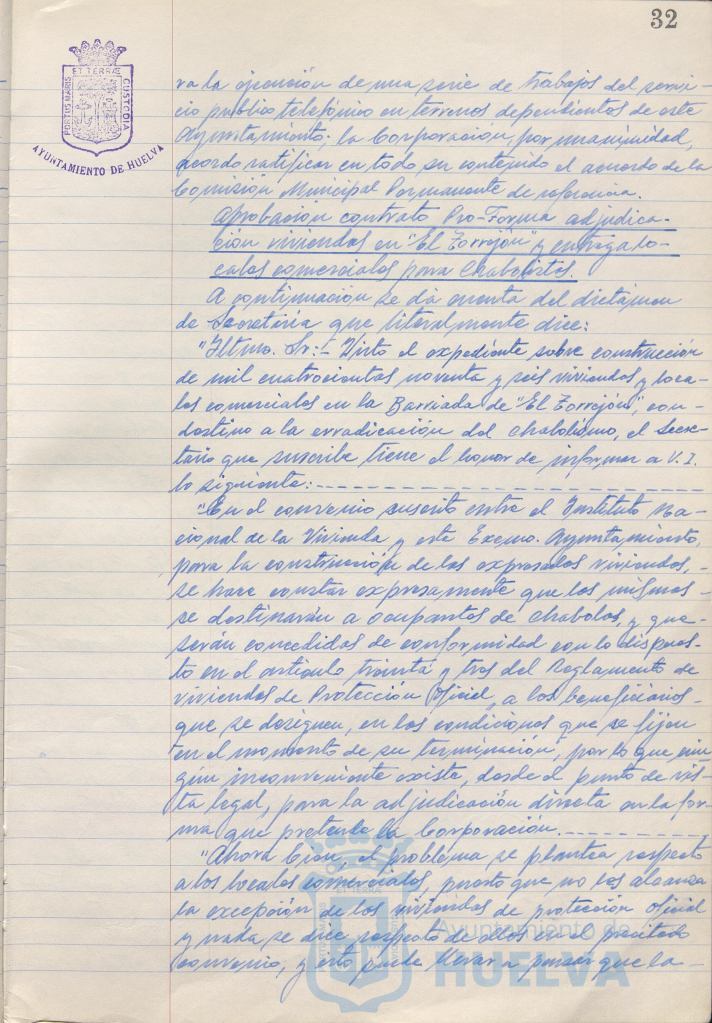 32
PORTUS MARIS ET TERRÆ CUSTODIA
AYUNTAMIENTO DE HUELVA
ra la ejecución de una serie de trabajos del servi-
cio público telefónico en terrenos dependientes de este
Ayuntamiento; la Corporación, por unanimidad,
acordó ratificar en todo su contenido el acuerdo de la
Comisión Municipal Permanente de referencia.
Aprobación contrato Pro-Forma adjudica-
ción viviendas en "El Torrejón" y entrega lo-
cales comerciales para Chabolistas.
A continuación se dá cuenta del dictámen
de Secretaría que literalmente dice:
"Iltmo. Sr:- Visto el expediente sobre construcción
de mil cuatrocientas noventa y seis viviendas y loca-
les comerciales en la Barriada de "El Torrejón", con-
destino a la erradicación del chabolismo, el Secre-
tario que suscribe tiene el honor de informar a V.I.
lo siguiente:-
"En el convenio suscrito entre el Instituto Na-
cional de la Vivienda y este Excmo. Ayuntamiento,
para la construcción de las expresadas viviendas,-
se hace constar expresamente que las mismas-
se destinarán a ocupantes de chabolas, y que-
serán concedidas de conformidad con lo dispues-
to en el artículo treinta y tres del Reglamento de
viviendas de Protección Oficial, a los beneficiarios-
que se designen, en las condiciones que se fijen
en el momento de su terminación, por lo que nin-
gún inconveniente existe, desde el punto de vis-
ta legal, para la adjudicación directa en la for-
ma que pretende la Corporación.-
"Ahora bien, el problema se plantea respecto
a los locales comerciales, puesto que no les alcanza
la excepción de las viviendas de protección oficial
y nada se dice respecto de ellos en el precitado
convenio, y esto puede llevar a pensar que la-
Ayuntamiento de
HUELVA